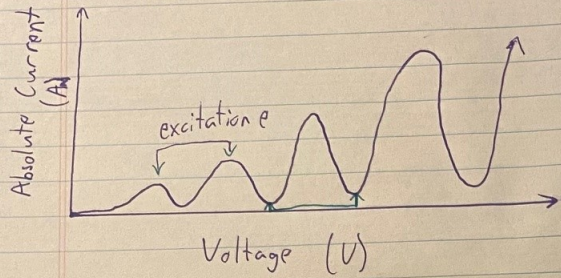 Absolute Current
(A)
excitation e
Voltage (V)